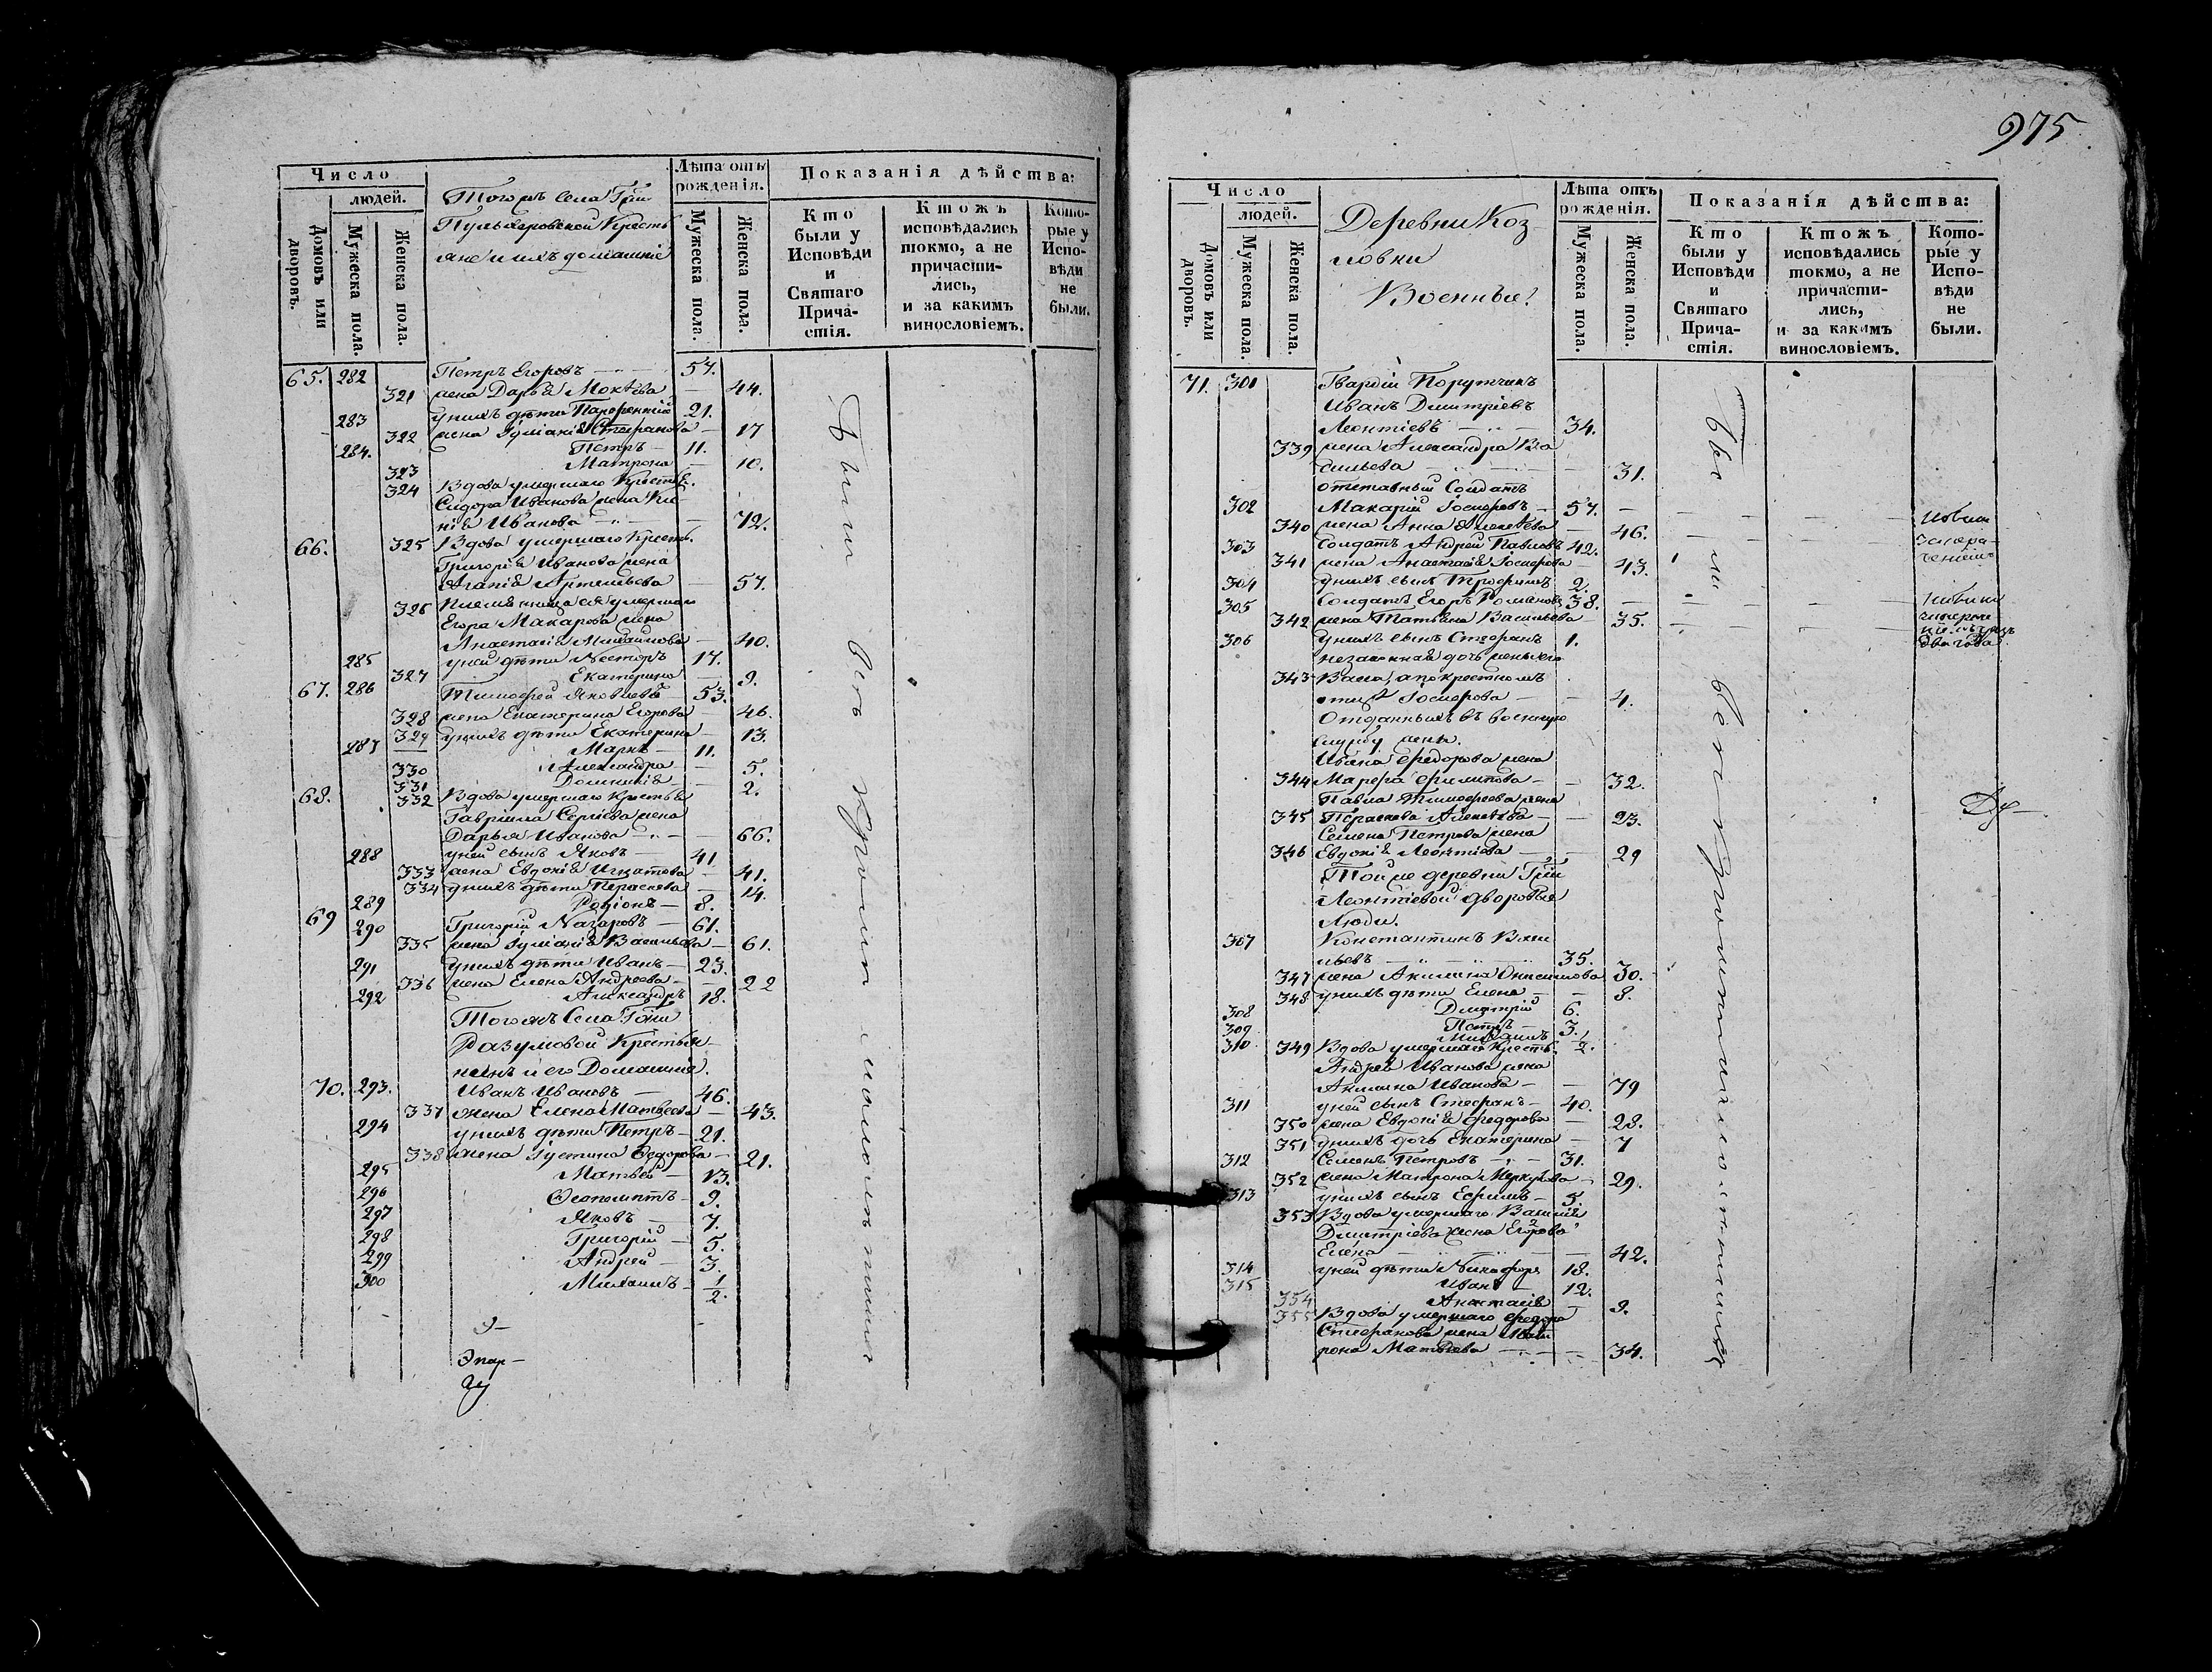 975
Число
людей.
Домовъ или дворовъ.
Мужеска пола.
Женска пола.
Тогожъ Села Гжи
Пульхеровской Кресть
яне и ихъ домашніе
Лѣта отъ рожденія.
Мужеска пола.
Женска пола.
Показанія дѣйства:
Кто были у Исповѣди и Святаго Причастія.
Ктожъ исповѣдались токмо, а не причастились, и за какимъ винословіемъ.
Которые у Исповѣди не были.
65. 282 Петръ Егоровъ 57.
321 жена Дарья Мокѣева 44.
283 у нихъ дѣти Парфентій 21.
322 жена Іуліанія Стефанова 17
284. Петръ 11.
323 Матрона 10.
324 Вдова умершаго Крестья.
Сидора Иванова жена
Иванова 72.
66. 325 Вдова умершаго Крестья.
Григорія Иванова жена
Агапія Артемьева 57.
326 умершаго
Егора Макарова жена
Анастасія Михайлова 40.
285 у ней дѣти Несторъ 17.
327 Екатерина 9.
67. 286 Тимофей Яковлевъ 53.
328 жена Екатерина Егорова 46.
329 у нихъ дѣти Екатерина 13.
287 Маркъ 11.
330 Александра 5.
331 Домникія 2.
68. 332 Вдова умершаго Крестья
Гавріила Сергіева жена
Дарья Иванова 66.
288 у ней сынъ Яковъ 41
333 жена Евдокія Игнатова 41.
334 у нихъ дѣти Параскева 14.
289 Родіонъ 8.
69 290 Григорій Назаровъ 61.
335 жена Іуліанія Васильева 61.
291 у нихъ дѣти Иванъ 23.
336 жена Елена Андреева 22
292 Александръ 18.
Тогожъ Села Гжи
Разумовой Крестья
нинъ и его Домашніе.
70. 293. Иванъ Ивановъ 46.
337 жена Елена Матвеева 43.
294 у нихъ дѣти Петръ 21.
338 жена Іустина Ѳедорова 21.
295 Матвей 13.
296 Ѳеопемптъ 9.
297 Яковъ 7.
298 Григорій 5.
299 Андрей 3.
300 Михаилъ 1/2.
Число
людей.
Домовъ или дворовъ.
Мужеска пола.
Женска пола.
Деревни Коз
ловки
Военныя
Лѣта отъ рожденія.
Мужеска пола.
Женска пола.
Показанія дѣйства:
Кто были у Исповѣди и Святаго Причастія.
Ктожъ исповѣдались токмо, а не причастились, и за какимъ винословіемъ.
Которые у Исповѣди не были.
71. 301 Гвардіи Порутчикъ
Иванъ Дмитріевъ
Леонтіевъ 34.
339 жена Александра Ва
сильева 31.
отставный Солдатъ
302 Макарій Іосифовъ 57.
340 жена Анна Алексѣева 46.
303 Солдатъ Андрей Павловъ 42.
341 жена Анастасія Іосифова 43.
304 у нихъ сынъ Трофимъ 2.
305 Солдатъ Егоръ Романовъ 38.
342 жена Татьяна Васильева 35.
306 у нихъ сынъ Стефанъ 1.
незаконная дочь жены его
343 Васса, а по крестномъ
отцѣ Іосифова 4.
Отданныхъ въ военную
службу жены.
Ивана Ѳедорова жена
344 Марфа Филипова 32.
Павла Тимофеева жена
345 Параскева Алексѣева 23.
Семена Петрова жена
346 Евдокія Леонтіева 29
Той же деревни Гжи
Леонтіевой дворовые
Люди.
307 Константинъ Васи
льевъ 35.
347 жена Акилина Онисимова 30.
348 у нихъ дѣти Елена 8.
308 Дмитрій 6.
309 Петръ 3.
310 Михаилъ 1/2.
349 Вдова умершаго Кресть.
Андрея Иванова жена
Акилина Иванова 79
311 у ней сынъ Стефанъ 40.
350 жена Евдокія Ѳедорова 28.
351 у нихъ дочь Екатерина 7
312 Семенъ Петровъ 31.
352 жена Матрона Меркулова 29.
313 у нихъ сынъ Ефимъ 5.
353 Вдова умершаго Василія
Дмитріева жена Егорова
Елена 42.
314 у ней дѣти Никифоръ 18.
315 Иванъ 12.
354 Анастасія 9.
355 Вдова умершаго Ѳедора
Стефанова жена Мат
рона Матвѣева 34.